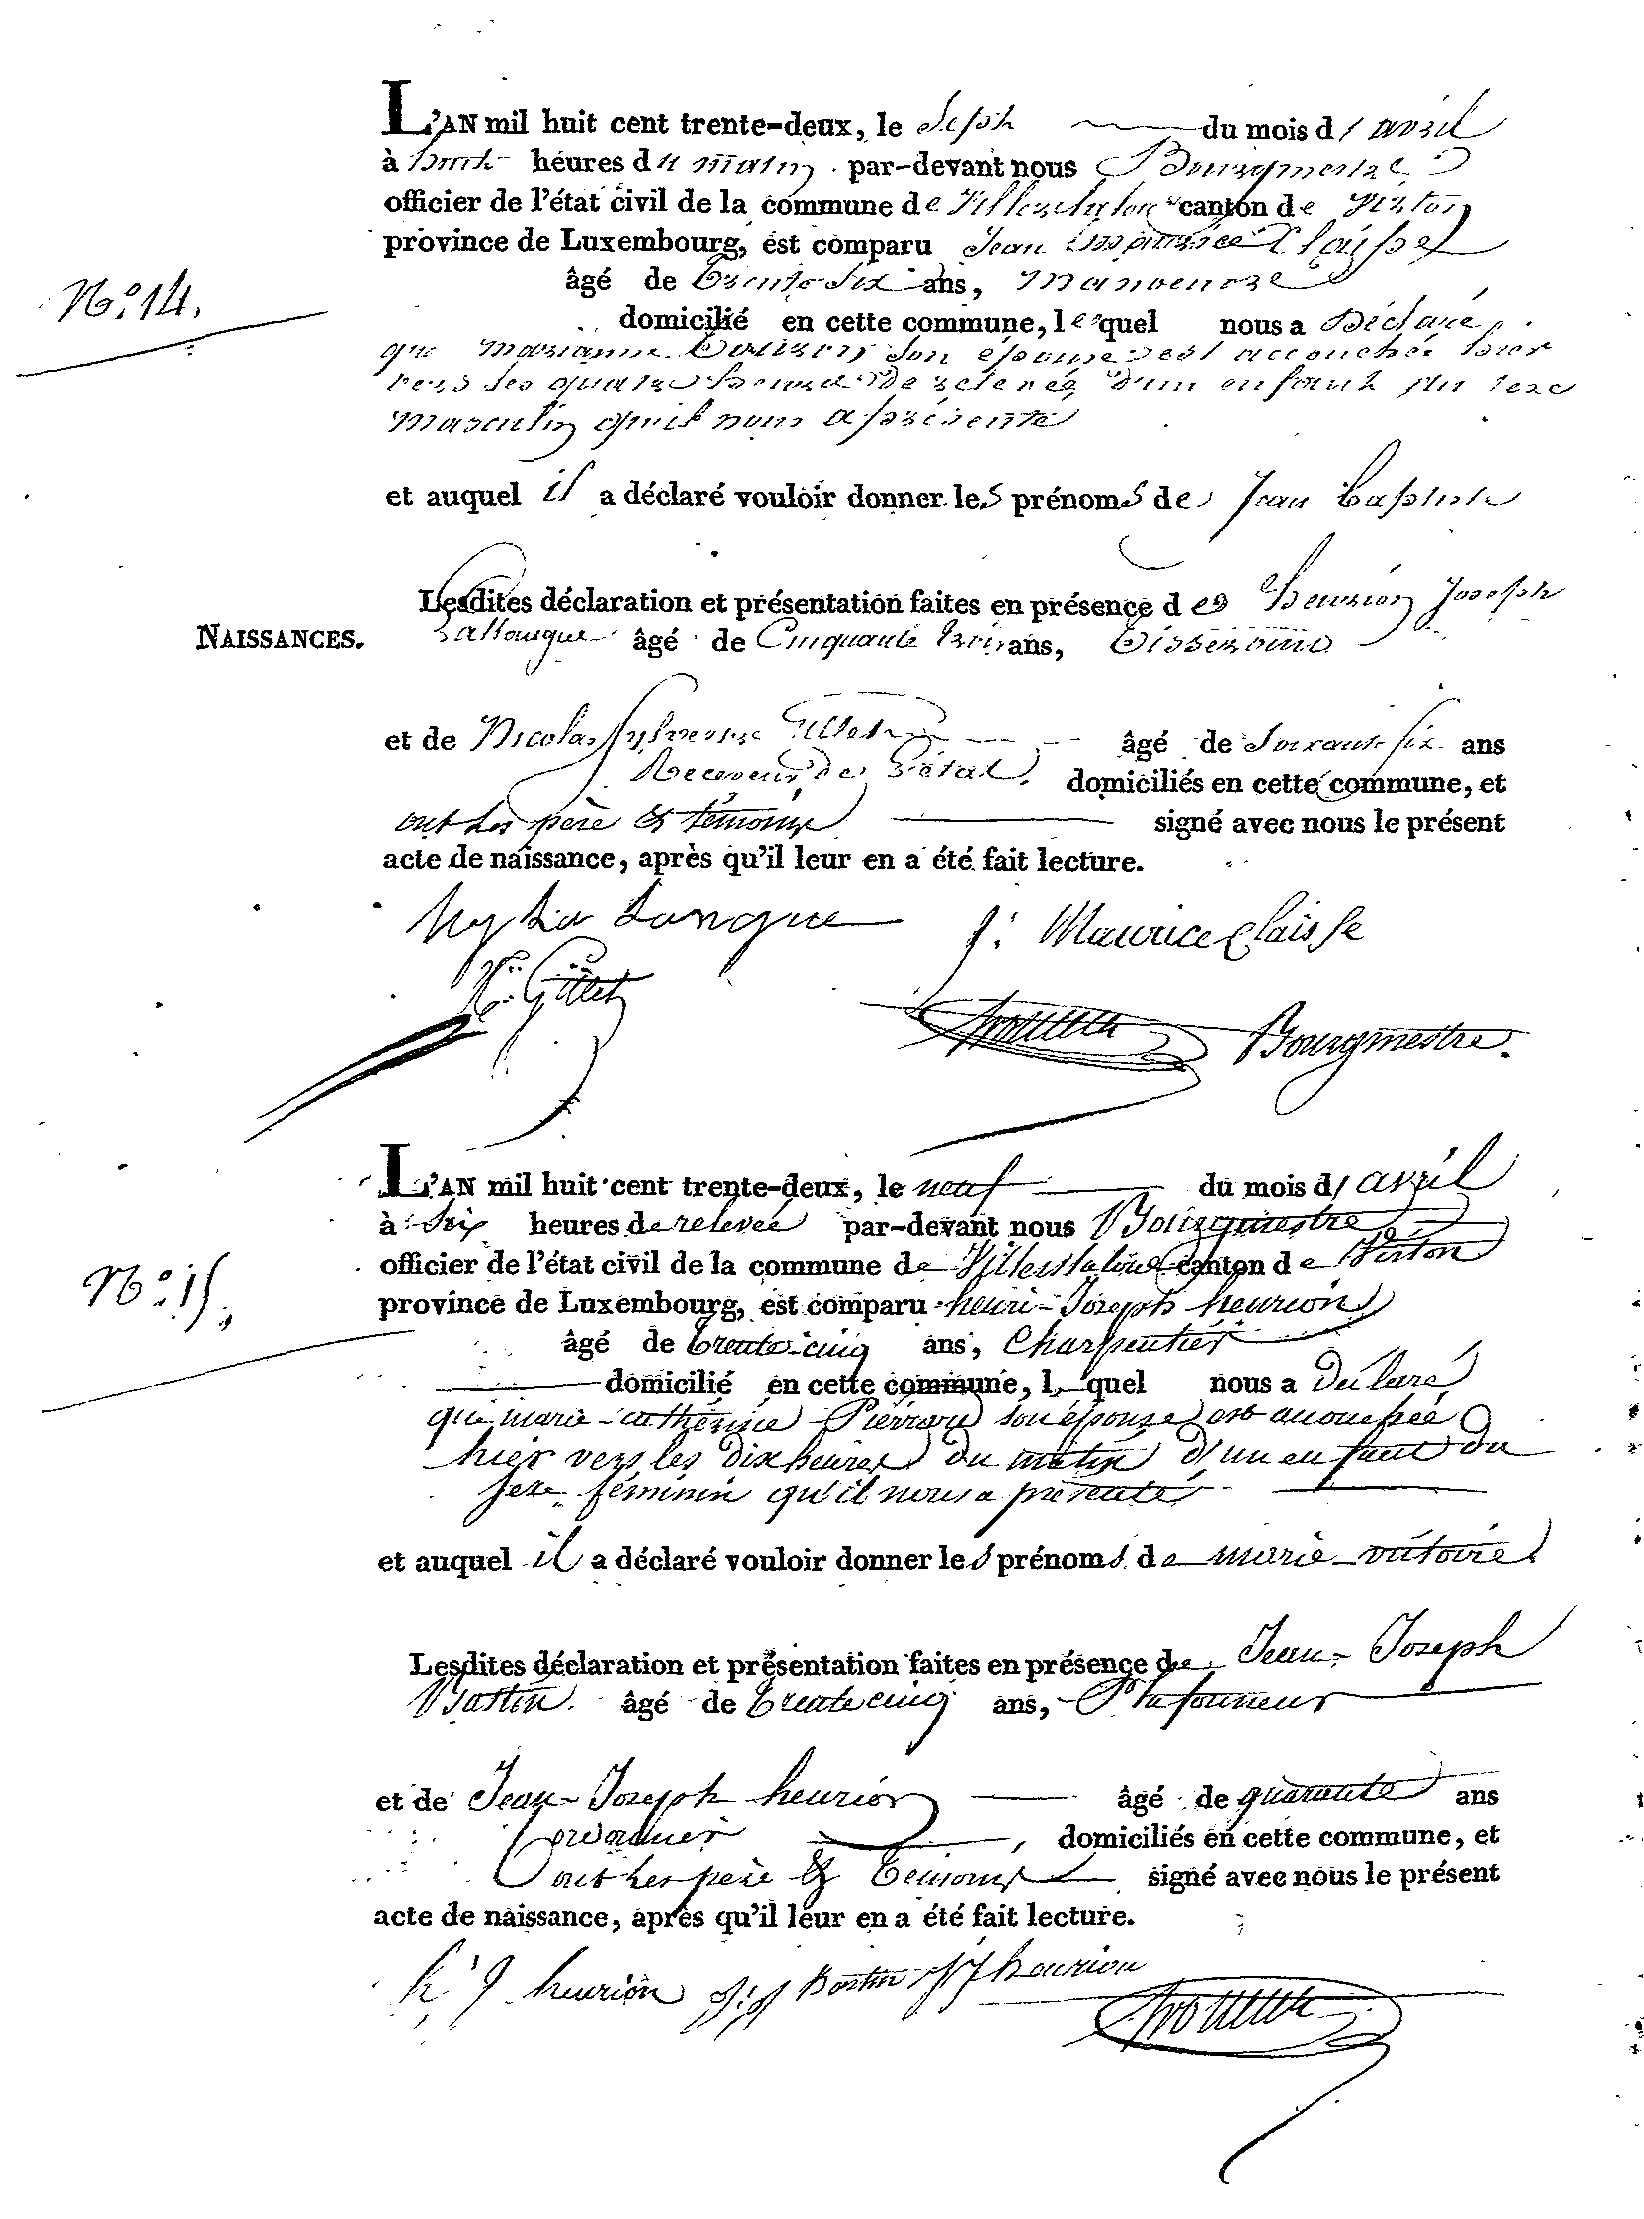 L'AN mil huit cent trente-deux, le Sept du mois d'avril
à huit heures du matin par-devant nous Bourgmestre
officier de l'état civil de la commune de Villers la loue canton de Virton
province de Luxembourg, est comparu Jean Maurice Claisse
âgé de trente six ans, manoeuvre
N.º 14.
domicilié en cette commune, lequel nous a Déclaré
que marianne son épouse est accouchée hier
vers les quatre heures de relevée d'un enfant du sexe
masculin qu'il nous a présenté
et auquel il a déclaré vouloir donner les prénoms de Jean baptiste
Lesdites déclaration et présentation faites en présence des henrion Joseph
NAISSANCES.
Lallongue âgé de Cinquante trois ans, tisserand
et de Nicolas Sylvestre Gillet âgé de Soixante six ans
Receveur de l'état domiciliés en cette commune, et
ont les père et témoins signé avec nous le présent
acte de naissance, après qu'il leur en a été fait lecture.
J. Maurice Claisse
Gillet
Bourgmestre.
L'AN mil huit cent trente-deux, le neuf du mois d'avril
à six heures de relevée par-devant nous Bourgmestre
officier de l'état civil de la commune de Villers la loue canton de Virton
N.º 15.
province de Luxembourg, est comparu henri-Joseph heurion
âgé de trente-cinq ans, Charpentier
domicilié en cette commune, lequel nous a Déclaré
que marie-cathérine Pierrard son épouse est accouchée
hier vers les dix heures du matin d'un enfant du
sexe féminin qu'il nous a présenté
et auquel il a déclaré vouloir donner les prénoms de marie-victoire
Lesdites déclaration et présentation faites en présence de Jean-Joseph
Bastin âgé de trente cinq ans, Plafonneur
et de Jean-Joseph heurion âgé de quarante ans
Cordonnier, domiciliés en cette commune, et
ont les père & témoins signé avec nous le présent
acte de naissance, après qu'il leur en a été fait lecture.
h J heurion J J Bastin J J heurion